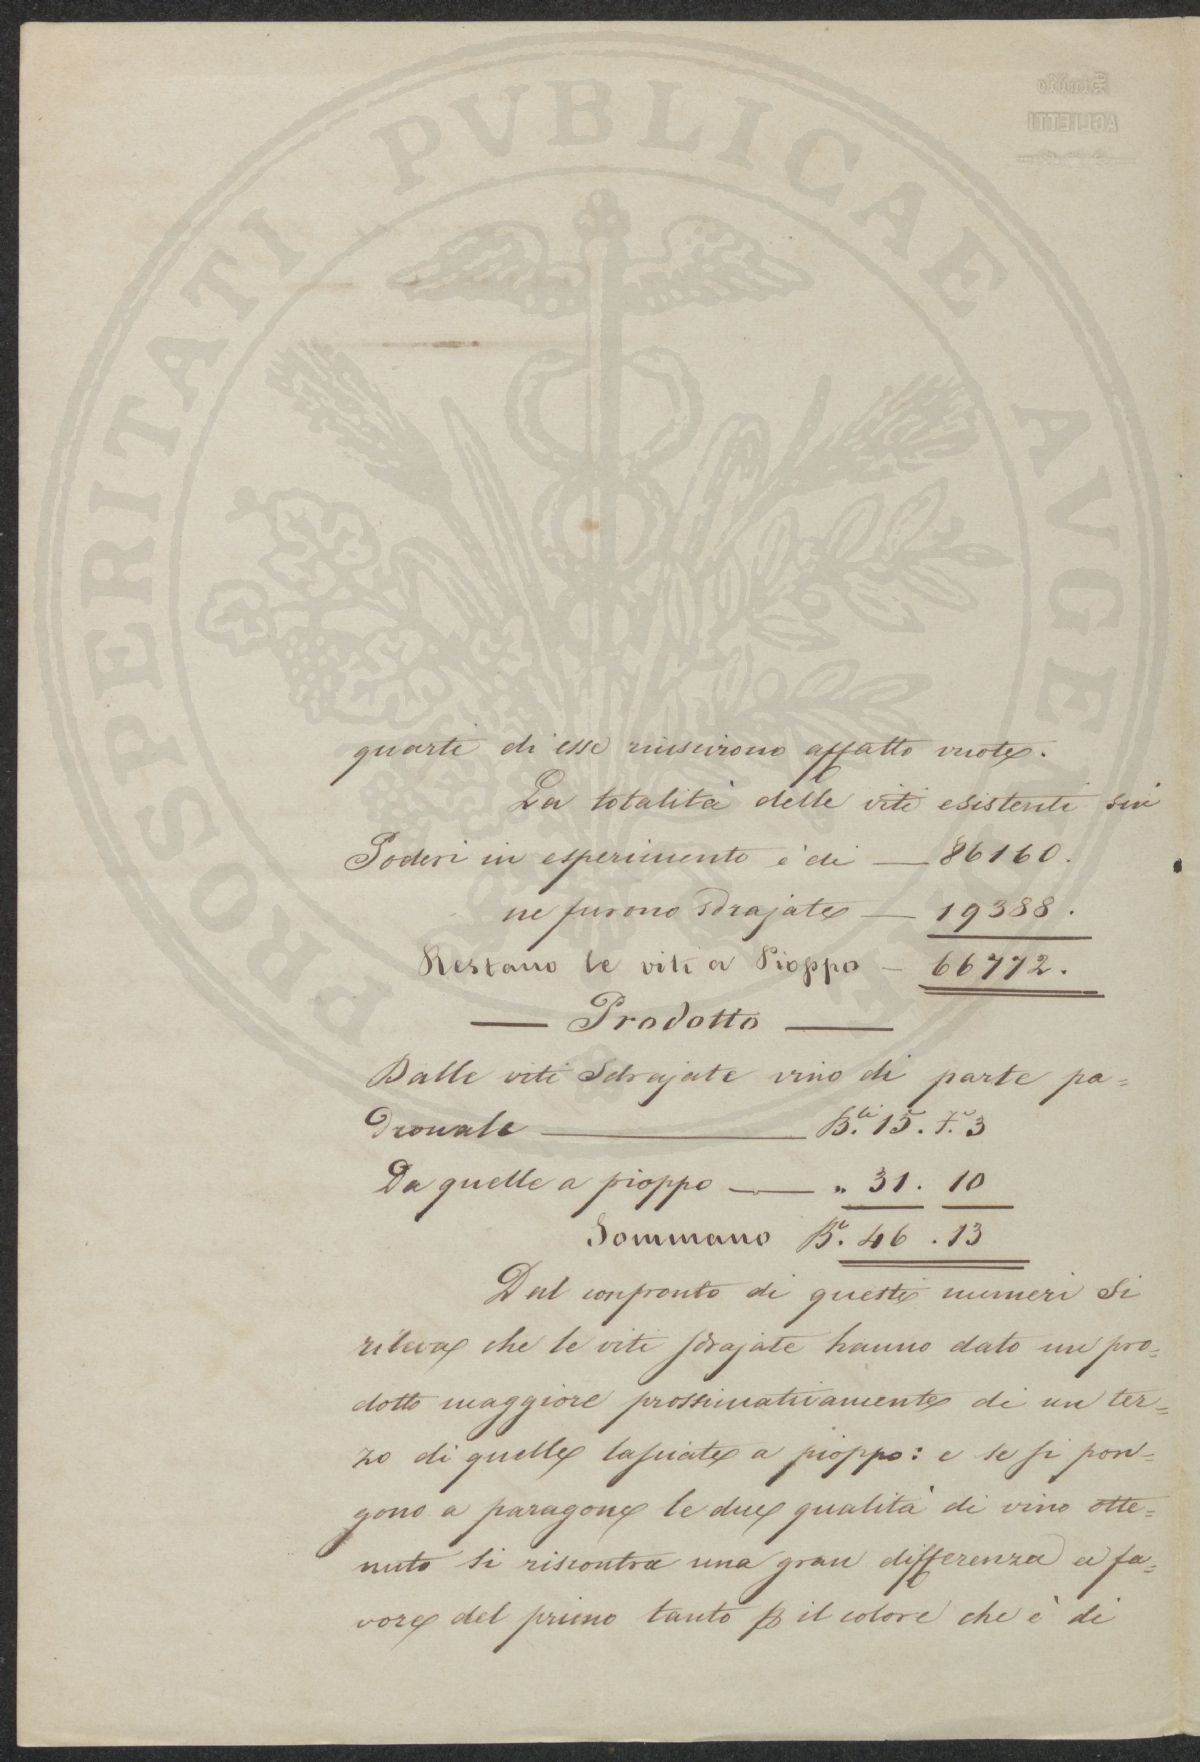 Studio
AGLIETTI
PROSPERITATI PVBLICAE AVGENDAE
quarti di esse riuscirono affatto vuote.
La totalità delle viti esistenti sui
Poderi in esperimento è di — 86160.
ne furono sdrajate — 19388.
Restano le viti a Pioppo — 66772.
— Prodotto —
Dalle viti Sdrajate vino di parte pa=
dronale — B.li 15. F. 3
Da quelle a pioppo — „ 31. 10
Sommano B.i 46. 13
Dal confronto di questi numeri si
rileva che le viti sdrajate hanno dato un pro=
dotto maggiore prossimativamente di un ter=
zo di quelle lasciate a pioppo: e se si pon=
gono a paragone le due qualità di vino otte=
nuto si riscontra una gran differenza a fa=
vore del primo tanto p il colore che è di